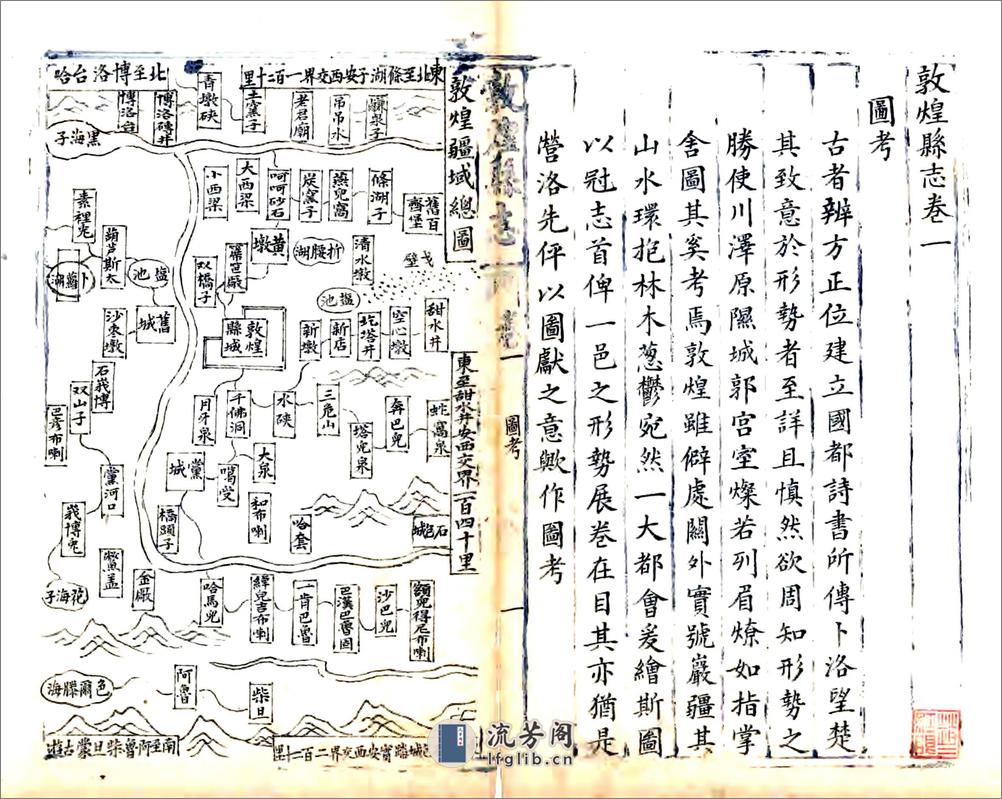 敦煌縣志卷一
圖考
古者辨方正位建立國都詩書所傳卜洛望楚
其致意於形勢者至詳且慎然欲周知形勢之
勝使川澤原隰城郭宮室燦若列眉燎如指掌
舍圖其奚考焉敦煌雖僻處關外實號巖疆其
山水環抱林木葱鬱宛然一大都會爰繪斯圖
以冠志首俾一邑之形勢展卷在目其亦猶是
營洛先伻以圖獻之意歟作圖考
敦煌縣志
圖考
一
敦煌疆域總圖
東北至條湖子安西交界一百二十里
北至博洛台哈
東至甜水井安西交界一百四十里
南至阿魯柴旦蒙古遊
城踏實安西交界二百二十里
青墩硤
土窯子
老君廟
吊吊水
博洛台
博洛磚井
黑海子
小西梁
大西梁
呵呵砂石
炭窯子
燕兒窩
條湖子
舊百齊堡
黃墩
折腰湖
清水墩
戈壁
素裡兎
葫芦斯太
鹽池
卜蘿湖
双橋子
鹽池
舊城
沙枣墩
敦煌縣城
新墩
新店
圪塔井
空心墩
甜水井
石莪博
双山子
巴彦布喇
月牙泉
千佛洞
水硤
三危山
塔兒泉
奔巴兎
蛇窩泉
黨城
噶受
大泉
黨河口
橋頭子
和布喇
哈套
石包城
莪博兎
鱉盖
金廠
花海子
哈馬兎
繹兒吉布喇
一肯巴魯
巴漢巴魯圖
沙巴兎
額兎得尼布喇
色爾騰海
阿魯
柴旦
流芳阁
lfglib.cn